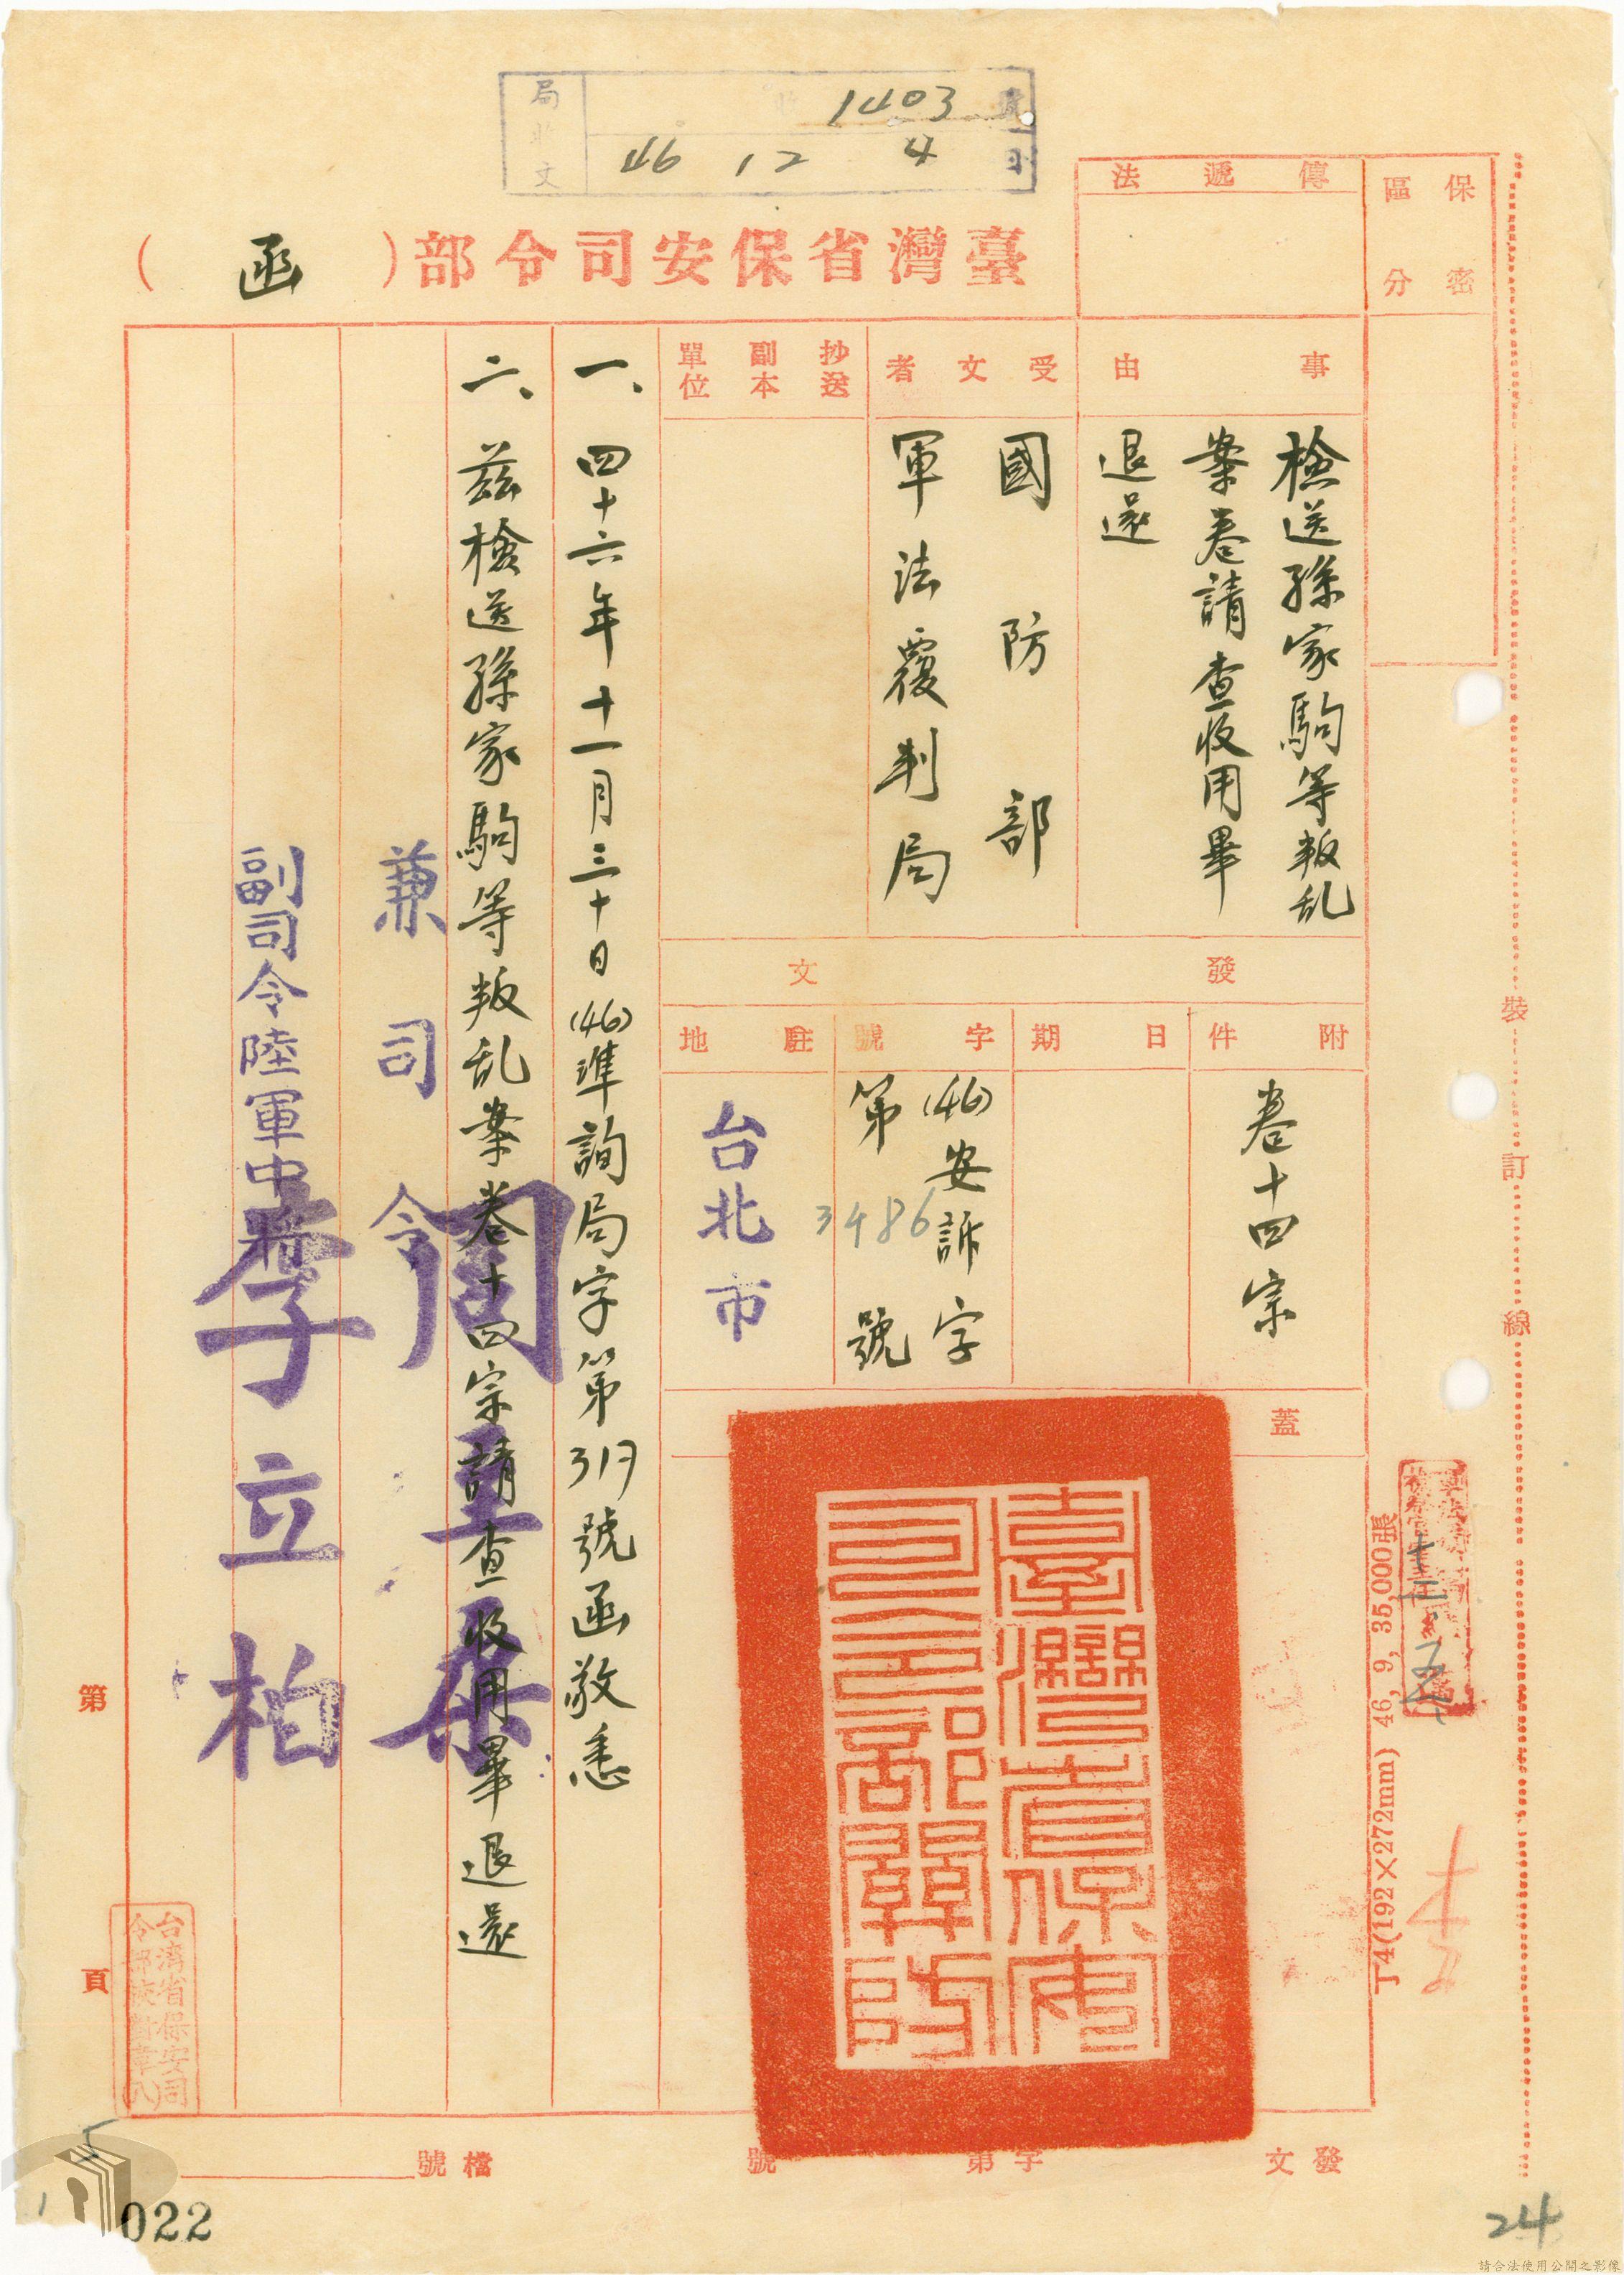 局收文
1403
46 12 4
臺灣省保安司令部(函)
保密
區分
傳遞法
事由
檢送孫家駒等叛乱
案卷請查收用畢
退還
受文者
國防部
軍法覆判局
抄送
副本
單位
發文
附件
卷十四宗
日期
字號
(46)安訴字
第3486號
駐地
台北市
蓋
臺灣省保安
司令部關防
一、四十六年十一月三十日(46)準詢局字第317號函敬悉
二、茲檢送孫家駒等叛乱案卷十四宗請查收用畢退還
兼司令周至柔
副司令陸軍中將李立柏
裝
訂
線
十二、五
丁4(192×272mm) 46, 9, 35,000張
第
頁
台灣省保安司
發文
字第
號
檔號
022
24
請合法使用公開之影像